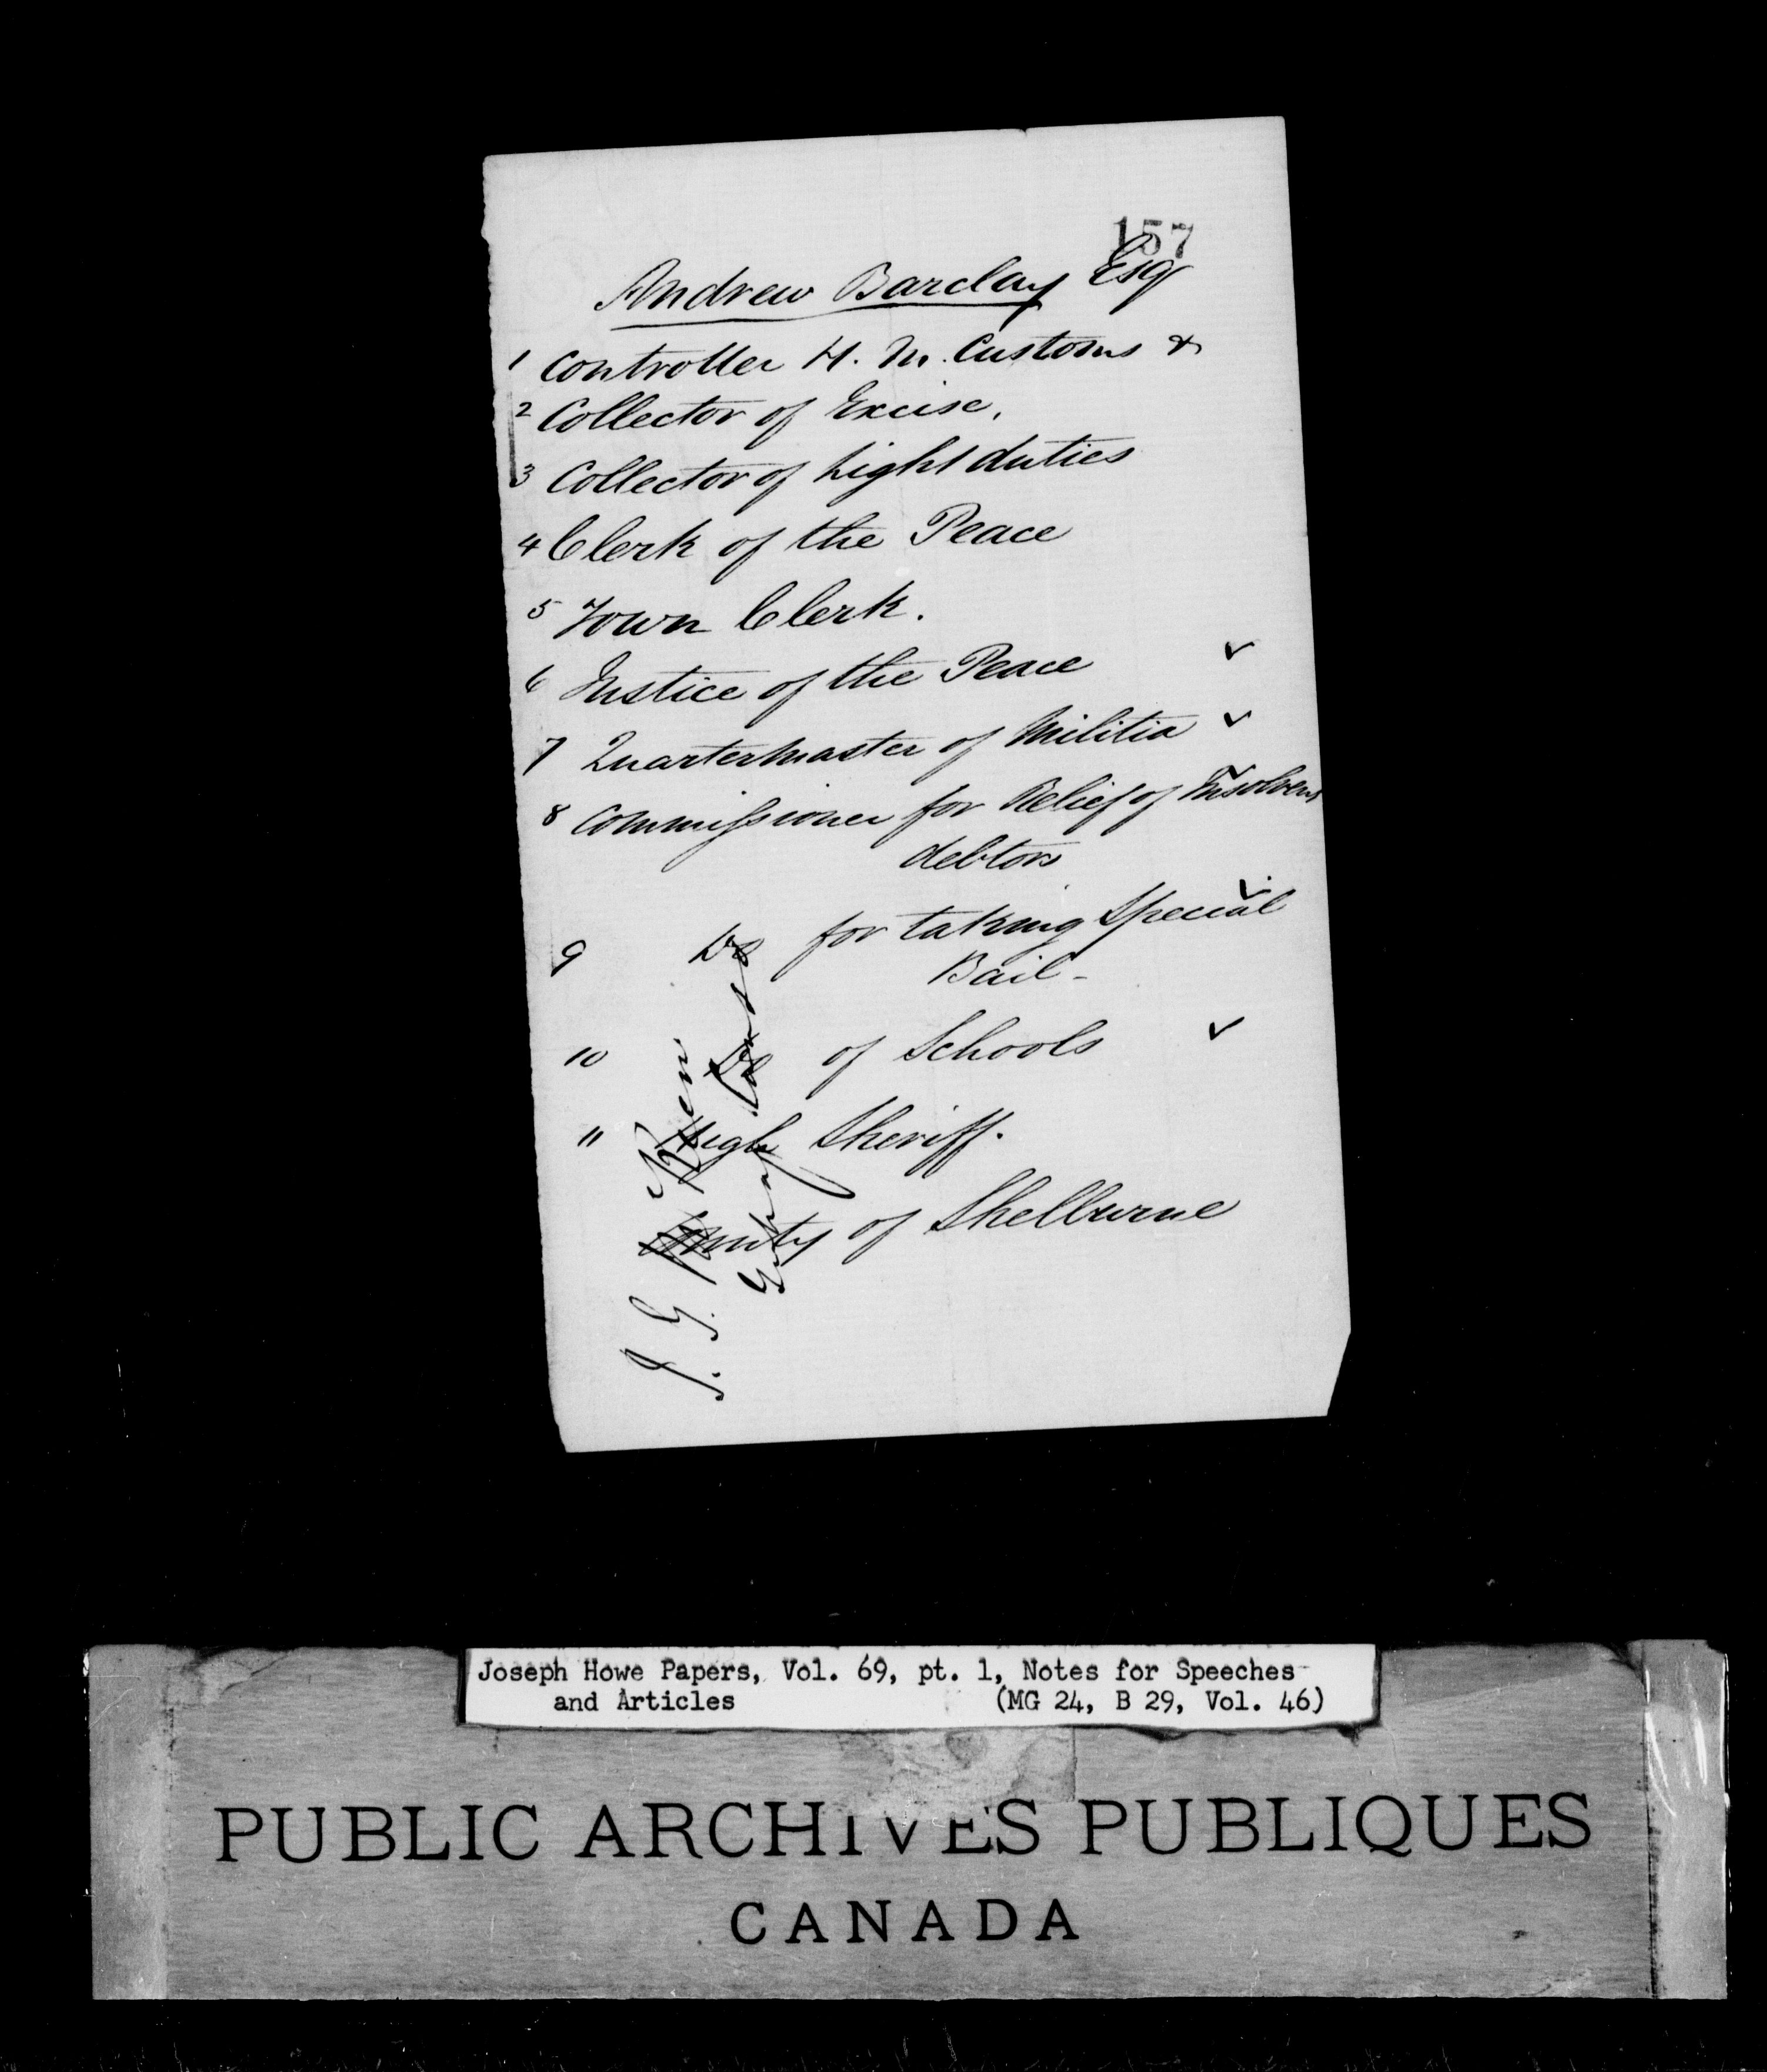 157
Andrew Barclay Esq
1 Controller H. M. Customs &
2 Collector of Excise.
3 Collector of Light duties
4 Clerk of the Peace
5 Town Clerk.
6 Justice of the Peace ✓
7 Quartermaster of Militia ✓
8 Commissioner for Relief of Insolvent
debtors
9 Do for taking Special ✓
Bail -
10 Do of Schools ✓
11 High Sheriff.
County of Shelburne
J. G.
Joseph Howe Papers, Vol. 69, pt. 1, Notes for Speeches
and Articles (MG 24, B 29, Vol. 46)
PUBLIC ARCHIVES PUBLIQUES
CANADA